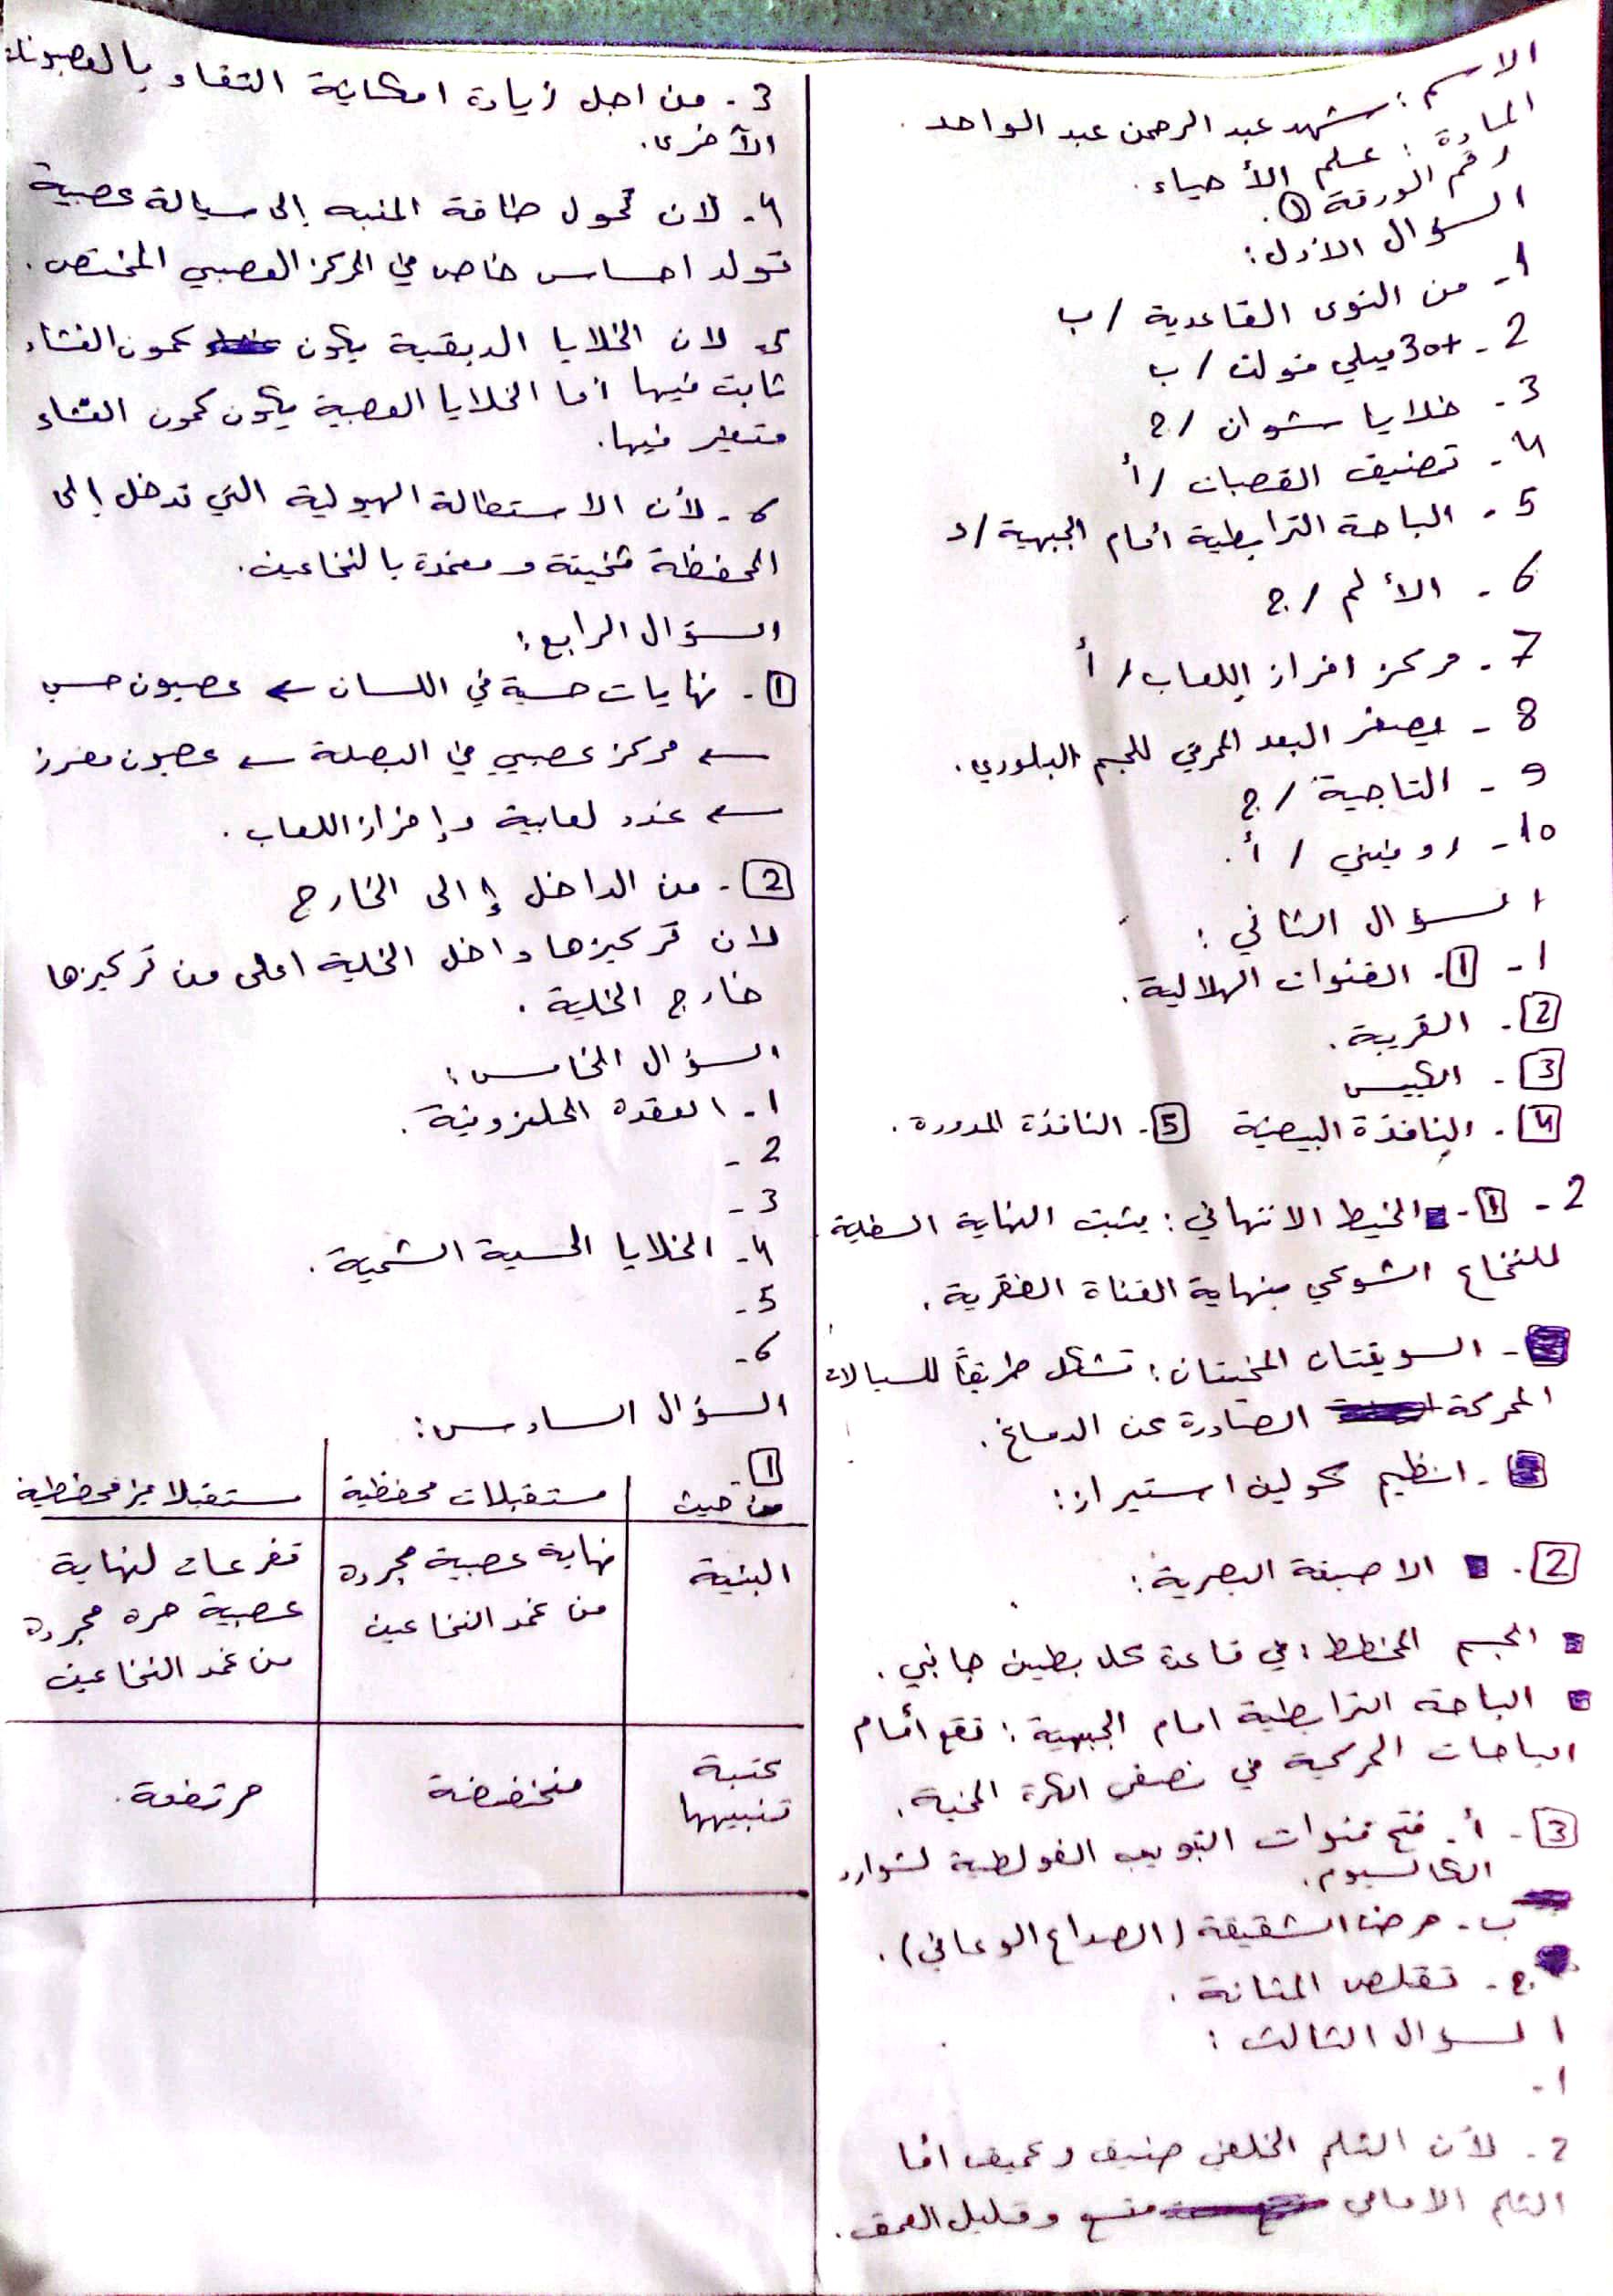 الاسم : شهد عبد الرحمن عبد الواحد .
المادة : علم الأحياء .
رقم الورقة ① .
السؤال الاول :
1- من النوى القاعدية / ب
2- +30 ميلي فولت / ب
3- خلايا شوان / ج
4- تصنيف القصبات / أ
5- الباحة الترابطية أمام الجبهية / د
6- الألم / ج
7- مركز افراز اللعاب / أ
8- يصغر البعد المحرقي للجسم البلوري .
9- التاجية / ج
10- رودنيني / أ .
السؤال الثاني :
1- 1- القنوات الهلالية .
2- القريبة .
3- الكييس
4- النافذة البيضية 5- النافذة المدورة .
2- 1- الخيط الانتهائي : يثبت النهاية السفلية
للنخاع الشوكي بنهاية القناة الفقرية .
- السويقتان المخيتان : تشكل طريقاً للسيالات
المحركة الصادرة عن الدماغ .
- انظيم كولين استيراز :
2- الاصبغة البصرية :
الجسم المخطط : في قاعدة كل بطين جانبي .
الباحة الترابطية امام الجبهية : تقع أمام
الباحات المحركية في نصفي الكرة المخية .
3- أ- فتح قنوات التبويب الفولطية لشوارد
الكالسيوم .
ب- مرض الشقيقة (الصداع الوعائي) .
ج- تقلص المثانة .
السؤال الثالث :
1-
2- لأن الثلم الخلفي ضيق وعميق أما
الثلم الامامي متسع وقليل العمق .
3- من اجل زيادة امكانية التقاء بالعصبونات
الآخرى .
4- لان تحول طاقة المنبه إلى سيالة عصبية
تولد احساس خاص في المركز العصبي المختص .
5- لان الخلايا الدبقية يكون كمون الغشاء
ثابت فيها أما الخلايا العصبية يكون كمون الغشاء
متغير فيها .
6- لأن الاستطالة الهيولية التي تدخل إلى
المحفظة ثخينة ومغمدة بالنخاعين .
السؤال الرابع :
1- نهايات حسية في اللسان ← عصبون حسي
← مركز عصبي في البصلة ← عصبون مفرز
← غدد لعابية وإفراز اللعاب .
2- من الداخل إالى الخارج
لان تركيزها داخل الخلية اعلى من تركيزها
خارج الخلية .
السؤال الخامس :
1- العقدة الحلزونية .
2-
3-
4- الخلايا الحسية الشمية .
5-
6-
السؤال السادس :
1
من حيث | مستقبلات محفظية | مستقبلات غير محفظية
البنية | نهاية عصبية مجردة من غمد النخاعين | تفرعات لنهاية عصبية حرة مجردة من غمد النخاعين
عتبة تنبيهها | منخفضة | مرتفعة .